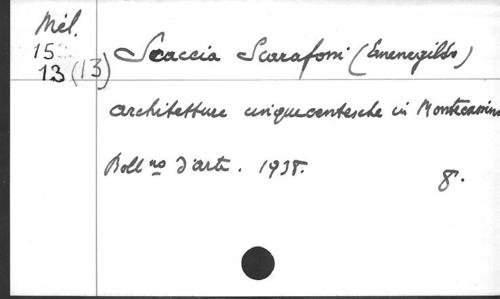 Mél.
15
13 (13)
Scaccia Scarafoni (Emenegildo)
architetture cinquecentesche in Montecassino
Boll no d'arte. 1938.
8.